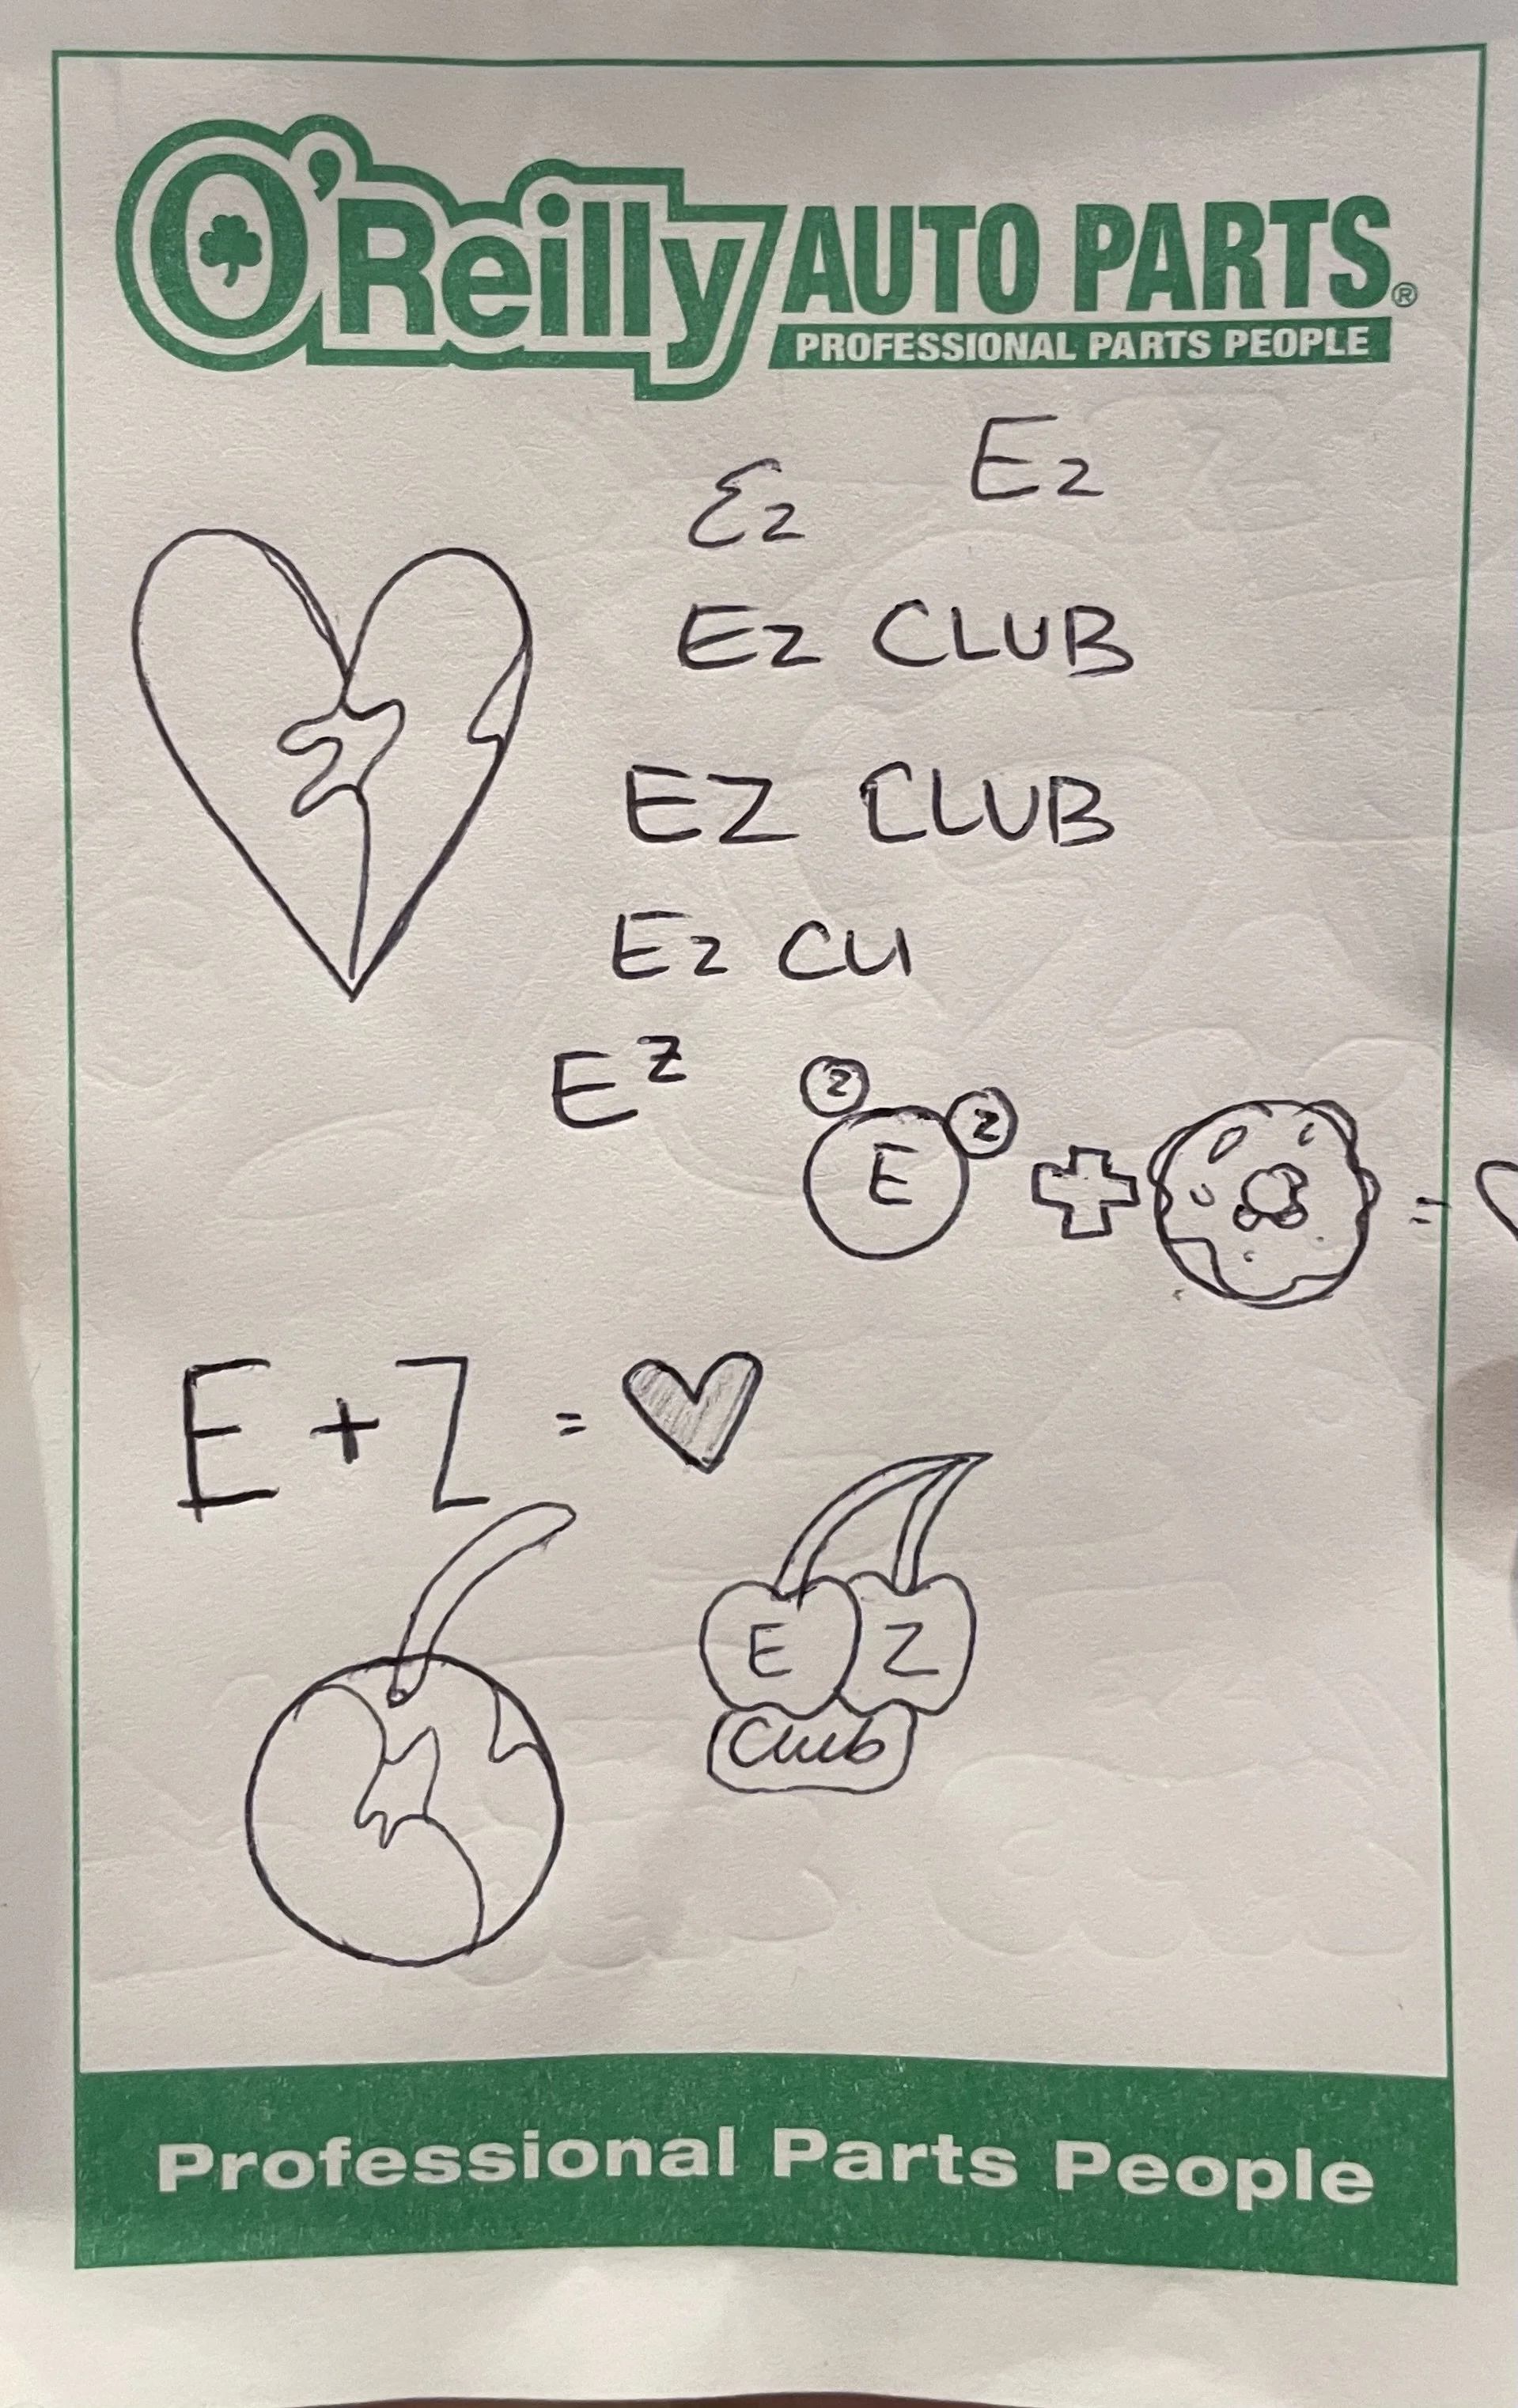 O'Reilly AUTO PARTS®
PROFESSIONAL PARTS PEOPLE
Ez
Ez
Ez CLUB
EZ CLUB
Ez CLI
E^Z
z z
E + =
E + Z =
E Z
Club
Professional Parts People